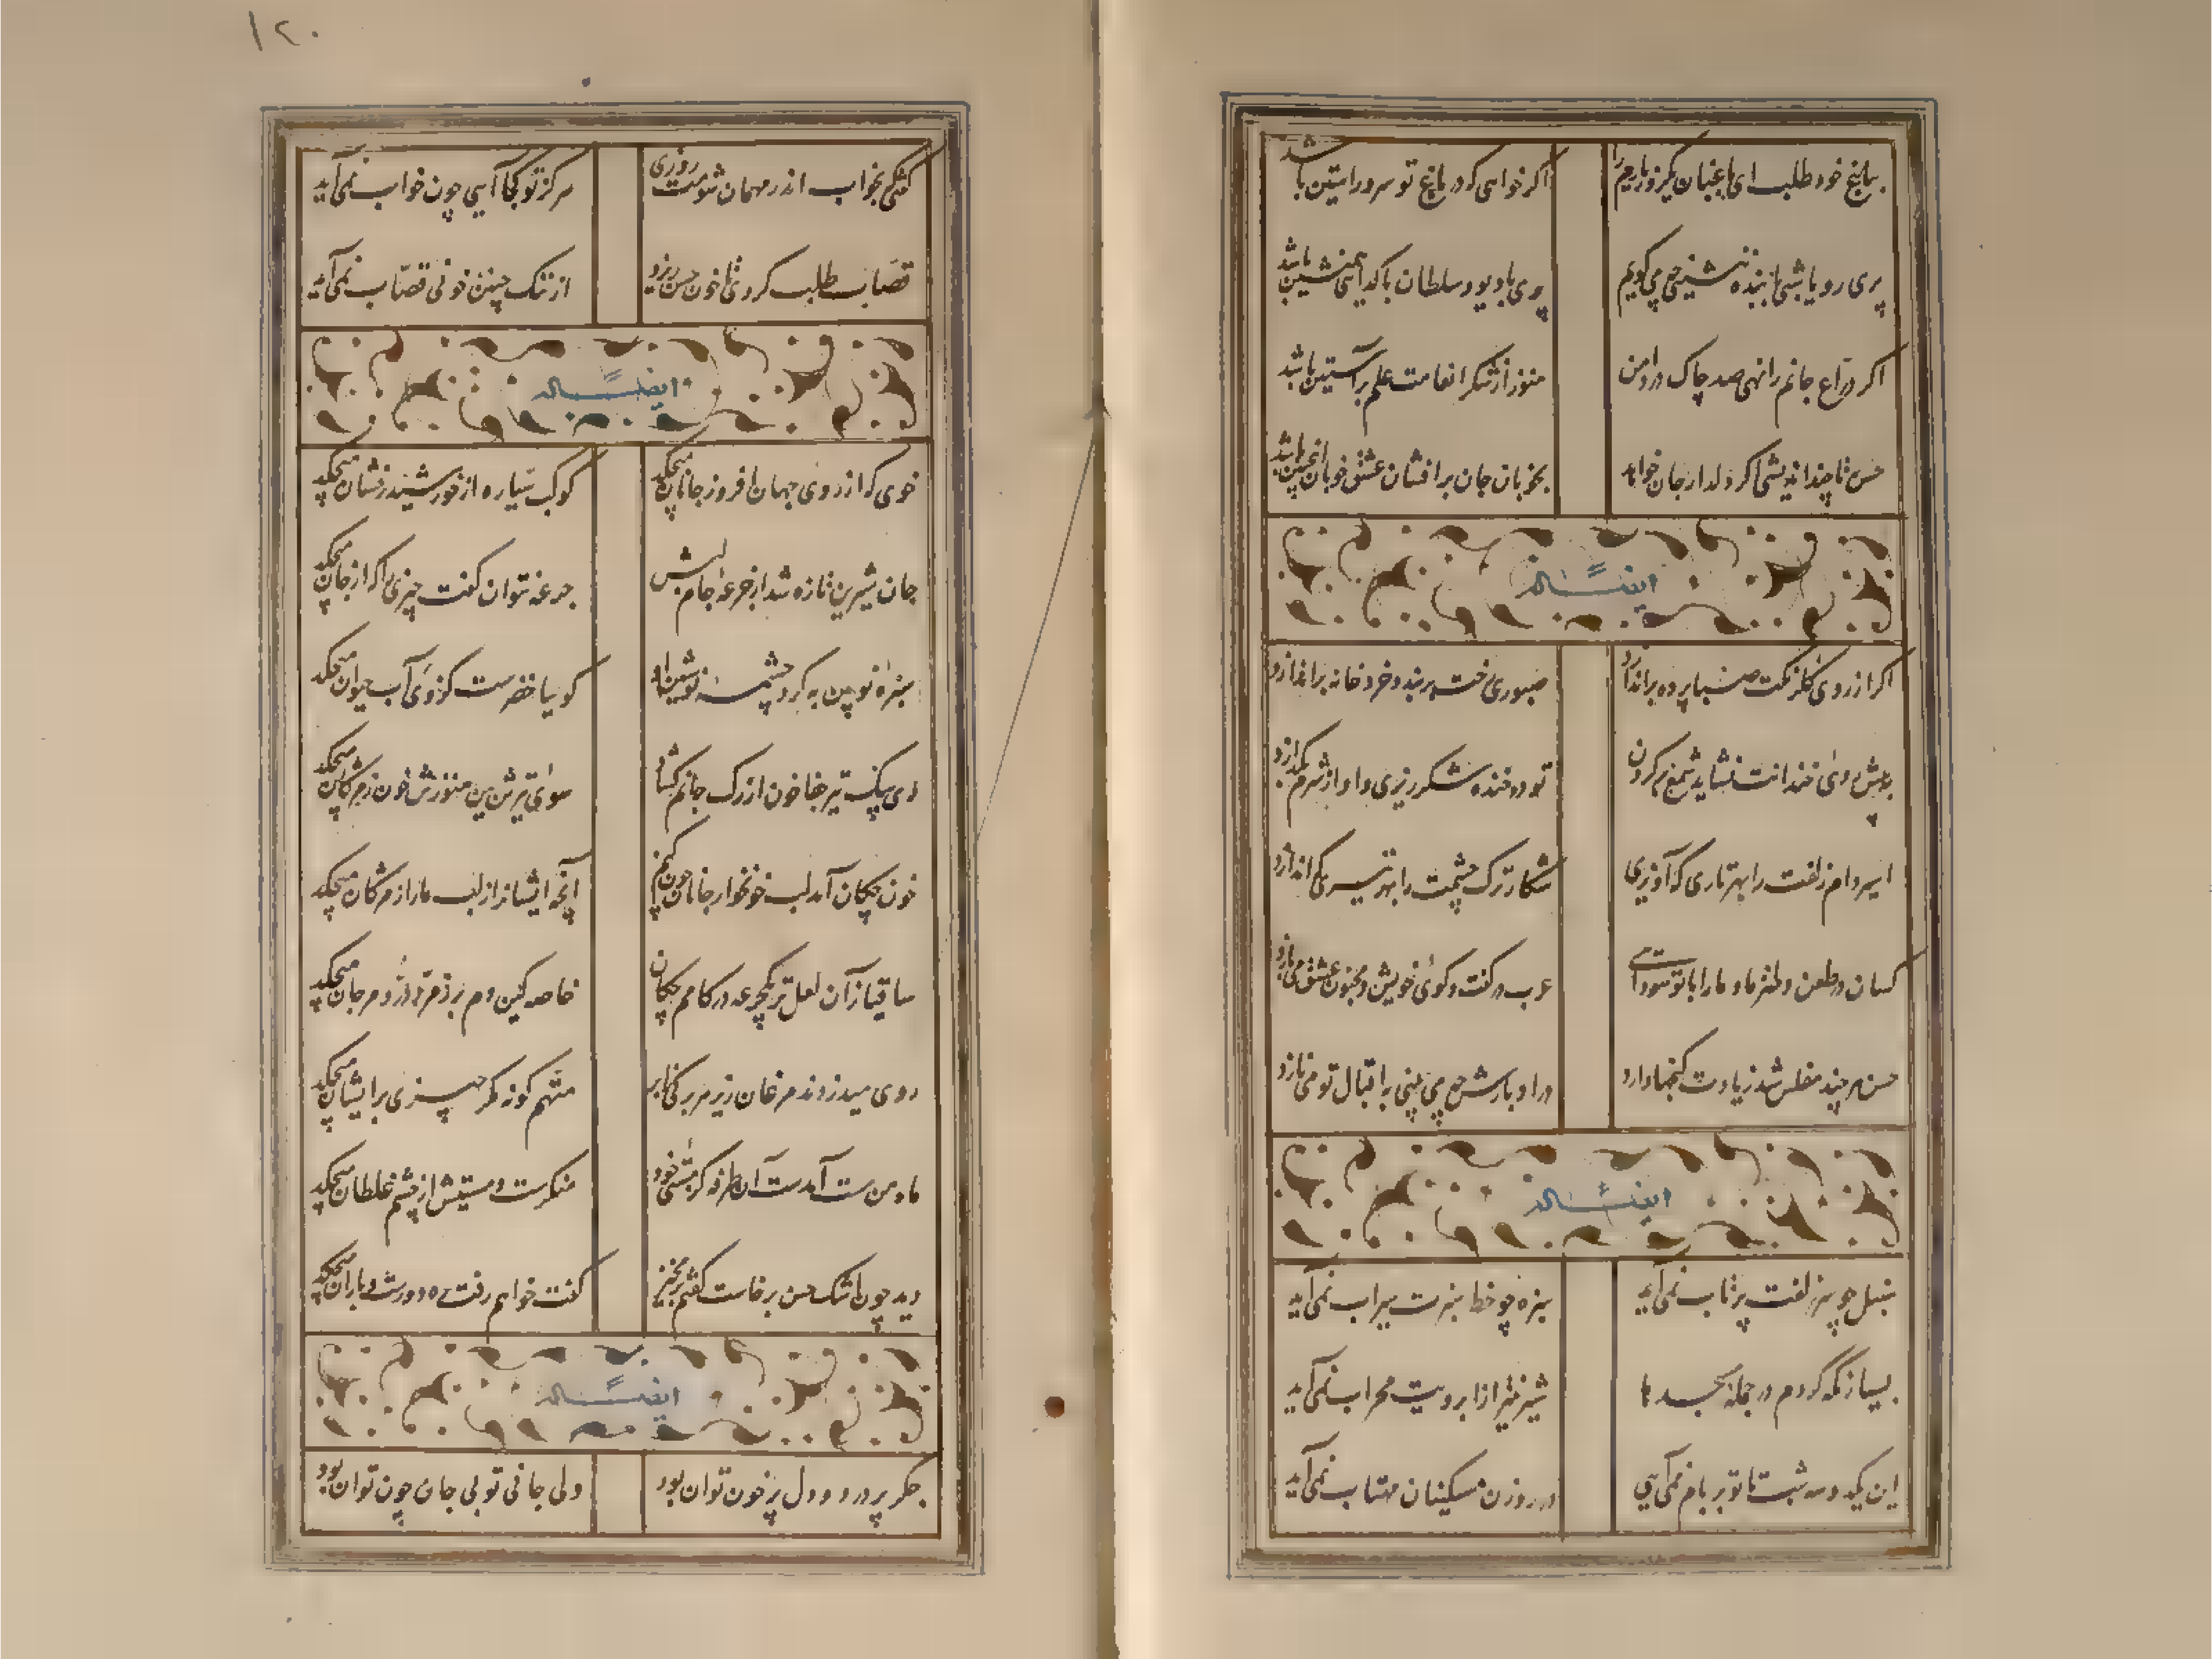 بباغ خود طلب ای باغبان یکروز یارم را اگر خواهی که در باغ تو سرو راستین باشد
پری رویا بشی با بنده بنشینی چه می‌گویم پری با دیو و سلطان با گدا کی همنشین باشد
اگر دراع جانم را نهی صد چاک در دامن هنوز از شکر انعامت علم بر آستین باشد
حسن تا چند اندیشی اگر دلدار جان خواهد بخوبان جان برافشان عشق خوبان اینچنین باشد
ایضاً له
اگر از روی گلرنگت صبا پرده براندازد صبوری رخت بربندد خرد خانه براندازد
به پیش روی خندانت نشاید شمع بر کردن تو در خنده شکر ریزی و او از شرم بگدازد
اسیر دام زلفت را بهر تاری که آویزی شکار ترک چشمت را بهر تیری که اندازد
کسان در طعن و طنز ما و ما را با تو سودائی عرب در گفت و گوی خویش و مجنون عشق می‌بازد
حسن هر چند مفلس شد ز یادت گنجها دارد در ادبارش چه می بینی به اقبال تو می‌نازد
ایضاً له
سنبل چو سر زلفت پرتاب نمی‌آید سبزه چو خط سبزت سیراب نمی‌آید
بسیار نگه کردم در جمله مسجدها شیرین‌تر از ابرویت محراب نمی‌آید
این یکدو سه شبست تا تو بر بام نمی‌آیی در روزن مسکینان مهتاب نمی‌آید
۱۲۰
گفتی بخواب اندر مهمان شومت روزی هرگز تو کجا آیی چون خواب نمی‌آید
قصاب طلب کردی تا خون حسن ریزد از ننگ چنین خونی قصّاب نمی‌آید
ایضاً له
خوی که از روی جهان افروز جانان میچکد کوکب سیاره از خورشید رخشان میچکد
جان شیرین تازه شد از جرعهٔ جام لبش جرعه نتوان گفت چیزی را که از جان میچکد
سبزهٔ نو بین به گرد چشمهٔ نوشین او گوییا خضرست کز وی آب حیوان میچکد
دی بیک تیر جفا خون از رگ جانم گشاد سوی تیرش بین هنوزش خون ز پیکان میچکد
خون چکان آمد لب خونخوار جانان چون کنم آنچه ایشانرا ز لب ما را ز مژگان میچکد
ساقیا زآن لعل تر یکجرعه در کامم چکان خاصه کین دم بر
روی میدزدند مرغان زیر پر متهم گونه مگر چیزی بر ایشان میچکد
ماه من مست آمدست آن طرفه کز مستی خود منکرست و مستیش از چشم غلطان میچکد
دید چون اشک حسن برخاست گفتم برمخیز گفت خواهم رفت ره دورست و باران میچکد
ایضاً له
جگر پر درد و دل پر خون توان بود ولی جانی تو بی جان چون توان بود